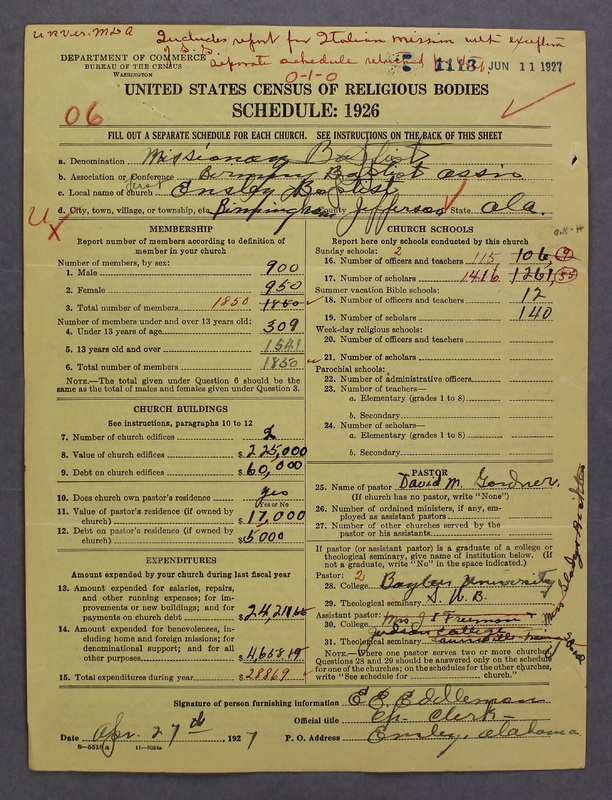 Includes report for Italian mission with exception
DEPARTMENT OF COMMERCE
BUREAU OF THE CENSUS
WASHINGTON
separate schedule
1113 JUN 11 1927
0-1-0
UNITED STATES CENSUS OF RELIGIOUS BODIES
SCHEDULE: 1926
06
FILL OUT A SEPARATE SCHEDULE FOR EACH CHURCH. SEE INSTRUCTIONS ON THE BACK OF THIS SHEET
a. Denomination Missionary Baptist
b. Association or Conference Birming Baptist assn
c. Local name of church First Ensley Baptist
d. City, town, village, or township, etc. Birmingham County Jefferson State Ala.
MEMBERSHIP
Report number of members according to definition of
member in your church
Number of members, by sex:
1. Male 900
2. Female 950
3. Total number of members 1850 1850
Number of members under and over 13 years old:
4. Under 13 years of age 309
5. 13 years old and over 1541
6. Total number of members 1850
NOTE.—The total given under Question 6 should be
same as the total of males and females given under Question 3.
CHURCH BUILDINGS
See instructions, paragraphs 10 to 12
7. Number of church edifices 2
8. Value of church edifices $ 225,000
9. Debt on church edifices $ 60,000
10. Does church own pastor's residence yes
Yes or No
11. Value of pastor's residence (if owned by
church) $ 17,000
12. Debt on pastor's residence (if owned by
church) $ 5000
EXPENDITURES
Amount expended by your church during last fiscal year
13. Amount expended for salaries, repairs,
and other running expenses; for im-
provements or new buildings; and for
payments on church debt $
14. Amount expended for benevolences, in-
cluding home and foreign missions; for
denominational support; and for all
other purposes $ 4658.19
15. Total expenditures during year $ 28869
CHURCH SCHOOLS
Report here only schools conducted by this church
Sunday schools: 2
16. Number of officers and teachers 115 106 9
17. Number of scholars 1416 1261
Summer vacation Bible schools:
18. Number of officers and teachers 12
19. Number of scholars 140
Week-day religious schools:
20. Number of officers and teachers
21. Number of scholars
Parochial schools:
22. Number of administrative officers
23. Number of teachers—
a. Elementary (grades 1 to 8)
b. Secondary
24. Number of scholars—
a. Elementary (grades 1 to 8)
b. Secondary
PASTOR
25. Name of pastor David M. Gardner
(If church has no pastor, write "None")
26. Number of ordained ministers, if any, em-
ployed as assistant pastors
27. Number of other churches served by the
pastor or his assistants
If pastor (or assistant pastor) is a graduate of a college or
theological seminary, give name of institution below. (If
not a graduate, write "No" in the space indicated.)
Pastor: 2
28. College Baylor University
29. Theological seminary S. W. B.
Assistant pastor: Mrs J S Freeman
30. College Judson College
31. Theological seminary
NOTE.—Where one pastor serves two or more churches,
Questions 28 and 29 should be answered only on the schedule
for one of the churches; on the schedules for the other churches,
write "See schedule for church."
Signature of person furnishing information E E Eddleman
Official title Ch. Clerk
Date Apr. 27th, 1927 P. O. Address Ensley, Alabama
8—5518a 11—9054a